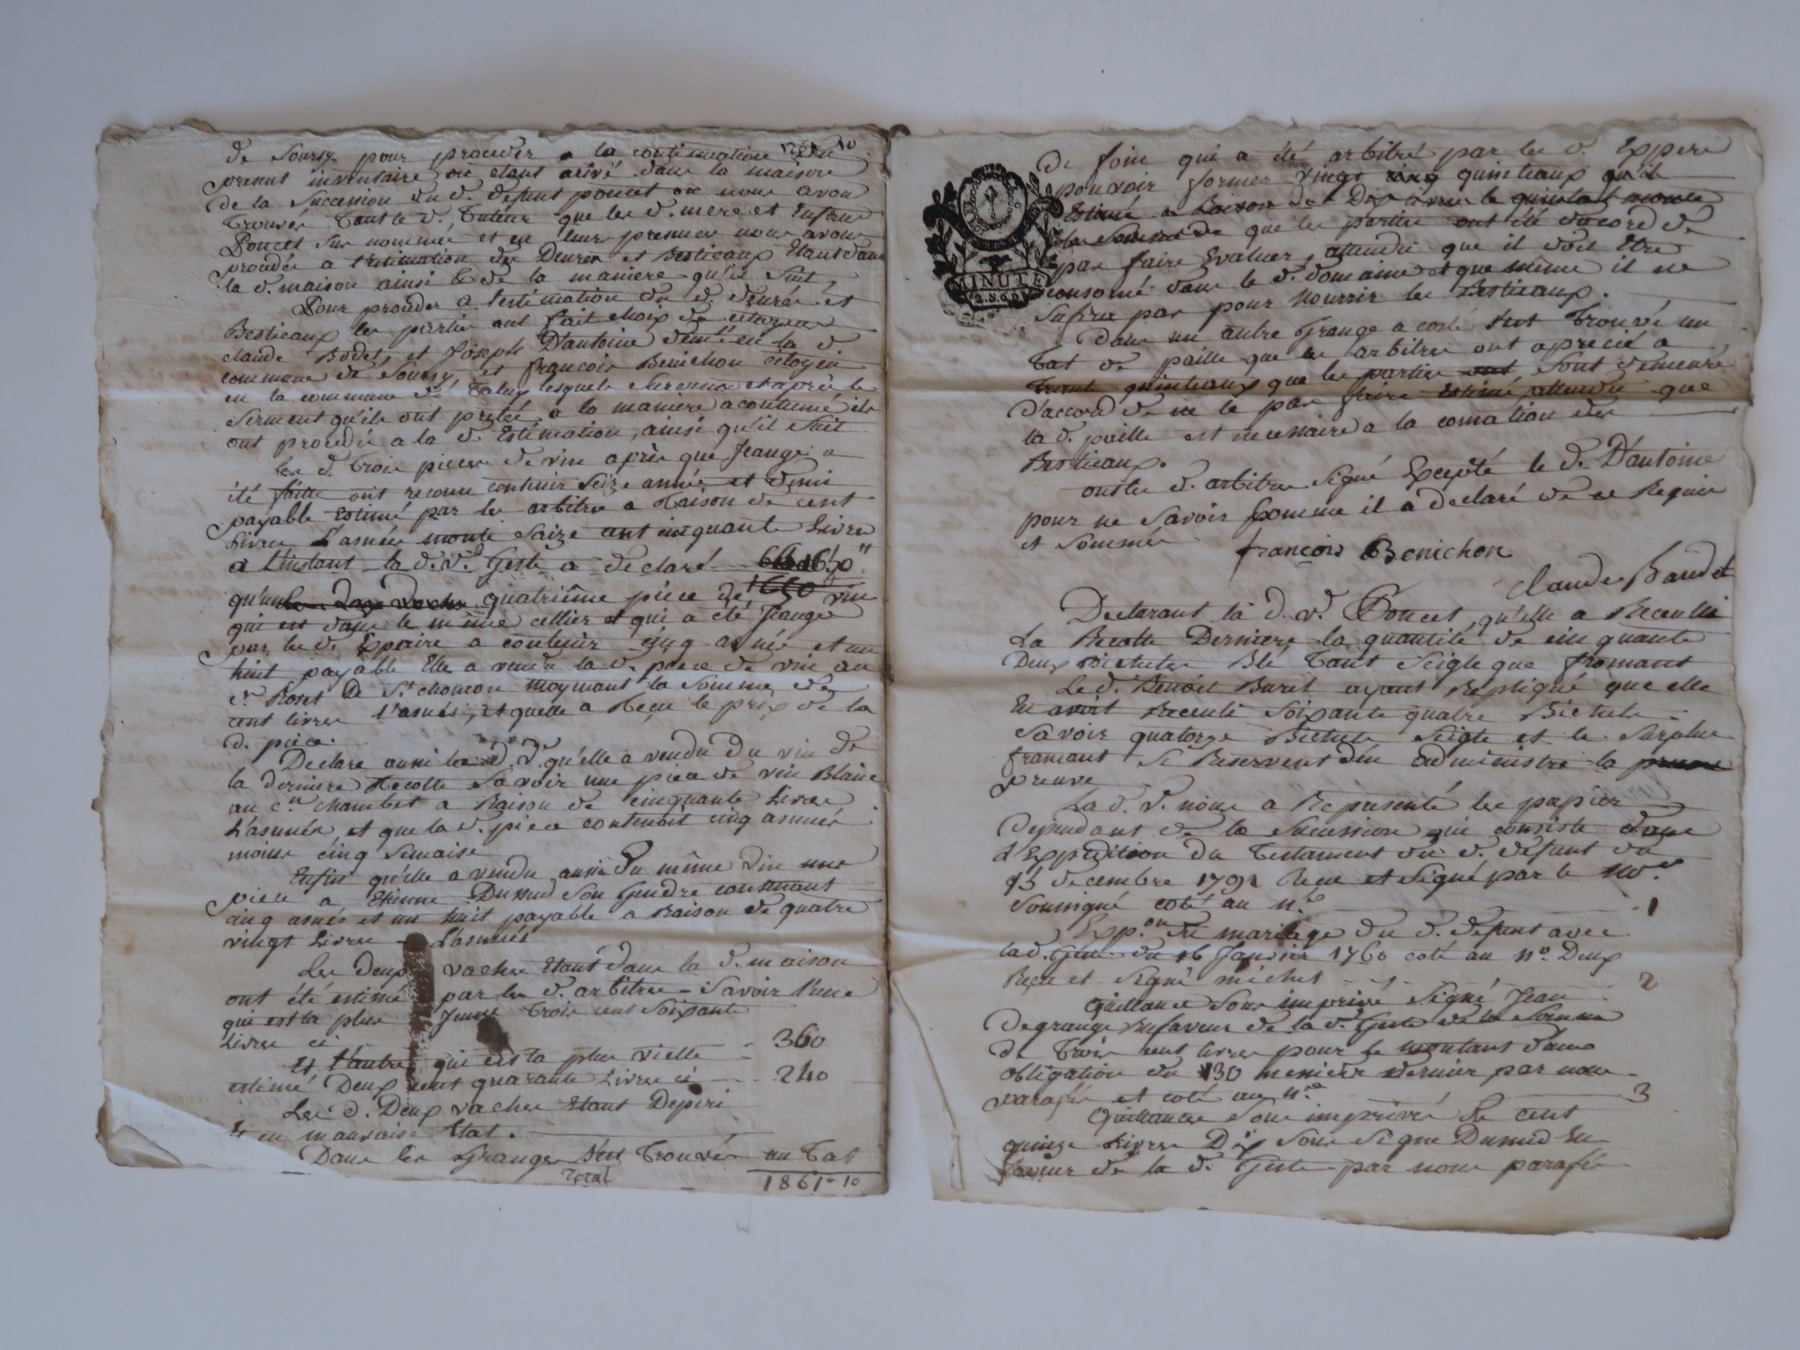 de Soursy pour proceder a la continuation du 10
present inventaire où étant arivé dans la maison
de la Succession du d. defunt poncet ou nous avons
Trouvés Tant le d. Tuteur que les d. mere et Enfans
Poncet Sus nommés et en leurs presences nous avons
procédé a l'estimation des Denrées et Bestieaux Etant dans
la d. maison ainsi & de la maniere qu'il Suit,
Pour proceder a l'estimation des d. denrées et
Bestieaux les parties ont fait choix de citoyens
claude Bodet, et Joseph D'antoine dem.t en la d.
commune de Soursy et françois Benichon citoyen
en la commune de Taluy lesquels et après le
Serment qu'ils ont preté a la maniere acoutumé ils
ont procedé a la d. Estimation, ainsi qu'il Suit
Les d. Trois pieces de vin après que Jeauge a
été faite ont reconnu contenir Seize annés et Demi
payable Estimé par les arbitres a Raison de cent
Livres L'asnée monte Saize cent cinquante Livres
a L'instant la d. v.e Geste a déclaré 1650"
1650
qu'une quatrième pièce de vin
qui est dans le même cellier et qui a été Jeaugé
par les d. Expaire a contenir cinq asnée et un
huit payable Elle a vendu la d. piece de vin au
c.n Roset De S.t chomon moynant la Somme de
cent livres l'asnés, et quelle a Reçu le prix de la
d. pièce.
Declare aussi la d. v.e qu'elle a vendu du vin de
la derniere Recolte Savoir une piece de vin Blanc
au c.n chambet a Raison de cinquante Livres
L'asnnée, et que la d. piece contenoit cinq asnnées
moins cinq Semaise
Enfin qu'elle a vendu aussi Du même vin une
piece a Etienne Dumed Son Gendre contenant
cinq asnés et un huit payable a Raison de quatre
vingt Livres L'asnnés
Les deux vaches Etant dans la d. maison
ont été estimé par les d. arbitres Savoir l'une
qui est la plus Jeune Trois cent Soixante
Livres ci 360
Et L'autre qui est la plus vielle
estimé Deux cent quarante Livres ci 240
Les d. Deux vaches Etant Deperi
Et en mauvais Etat.
Dans les Granges S'est Trouvés un Tas
Total 1861-10
De foin qui a été arbitré par les d. Expers
pouvoir former vingt quinteaux qu'il
Estimé a Raison de Dix livres le quintal monte
la Somme de que les parties ont été dacord de
pas faire Evaluer, attendu que il doit Etre
MINUTE
consomé dans le d. domaine et que même il ne
Sufira pas pour nourrir les Bestieaux.
Dans un autre Grange a coté S'est Trouvé un
Tas de paille que les arbitres ont aprecié a
Trante quinteaux que les parties Sont demeuré
D'accord de ne le pas faire Estimé attendu que
la d. paille est necessaire a la des
Bestieaux.
ont les d. arbitres Signé Excepté le d. D'antoine
pour ne Savoir comme il a déclaré de ce Requis
et Sommé
françois Benichon
claude Baudet
Declarant la d. v.e Poncet, qu'elle a Receuilli
La Recolte Derniere la quantité de cinquante
Deux Bichetes Blé Tant Seigle que fromant
Le d. Benoit Buret ayant Repliqué que elle
En avoit Receuli Soixante quatre Bichets
Savoir quatorze Bichets Seigle et le Surplus
fromant Se Reservent d'en administré la
preuve
La d. v.e nous a Representé les papiers
Dependant de la Succession qui consiste dans
L'Expedition du Testament du d. défunt du
15 decembre 1792 Reçu et Signé par le no.re
Soussigné coté au n.o 1
Exp.on de mariage du d. defunt avec
la d. Geste du 16 Janvier 1760 coté au n.o Deux
Reçu et Signé michel 2
Quittance Sous imprivé Signé Jean
Degrange Enfaveur de la d. Geste de la Somme
De Trois cent livres pour le montant dune
obligation du 30 messidor dernier par nous
parafé et coté au n.o 3
Quittance Sous imprivé De cent
quinze Livres Dix Sous Signe Dumed En
faveur de la d. Geste par nous parafé